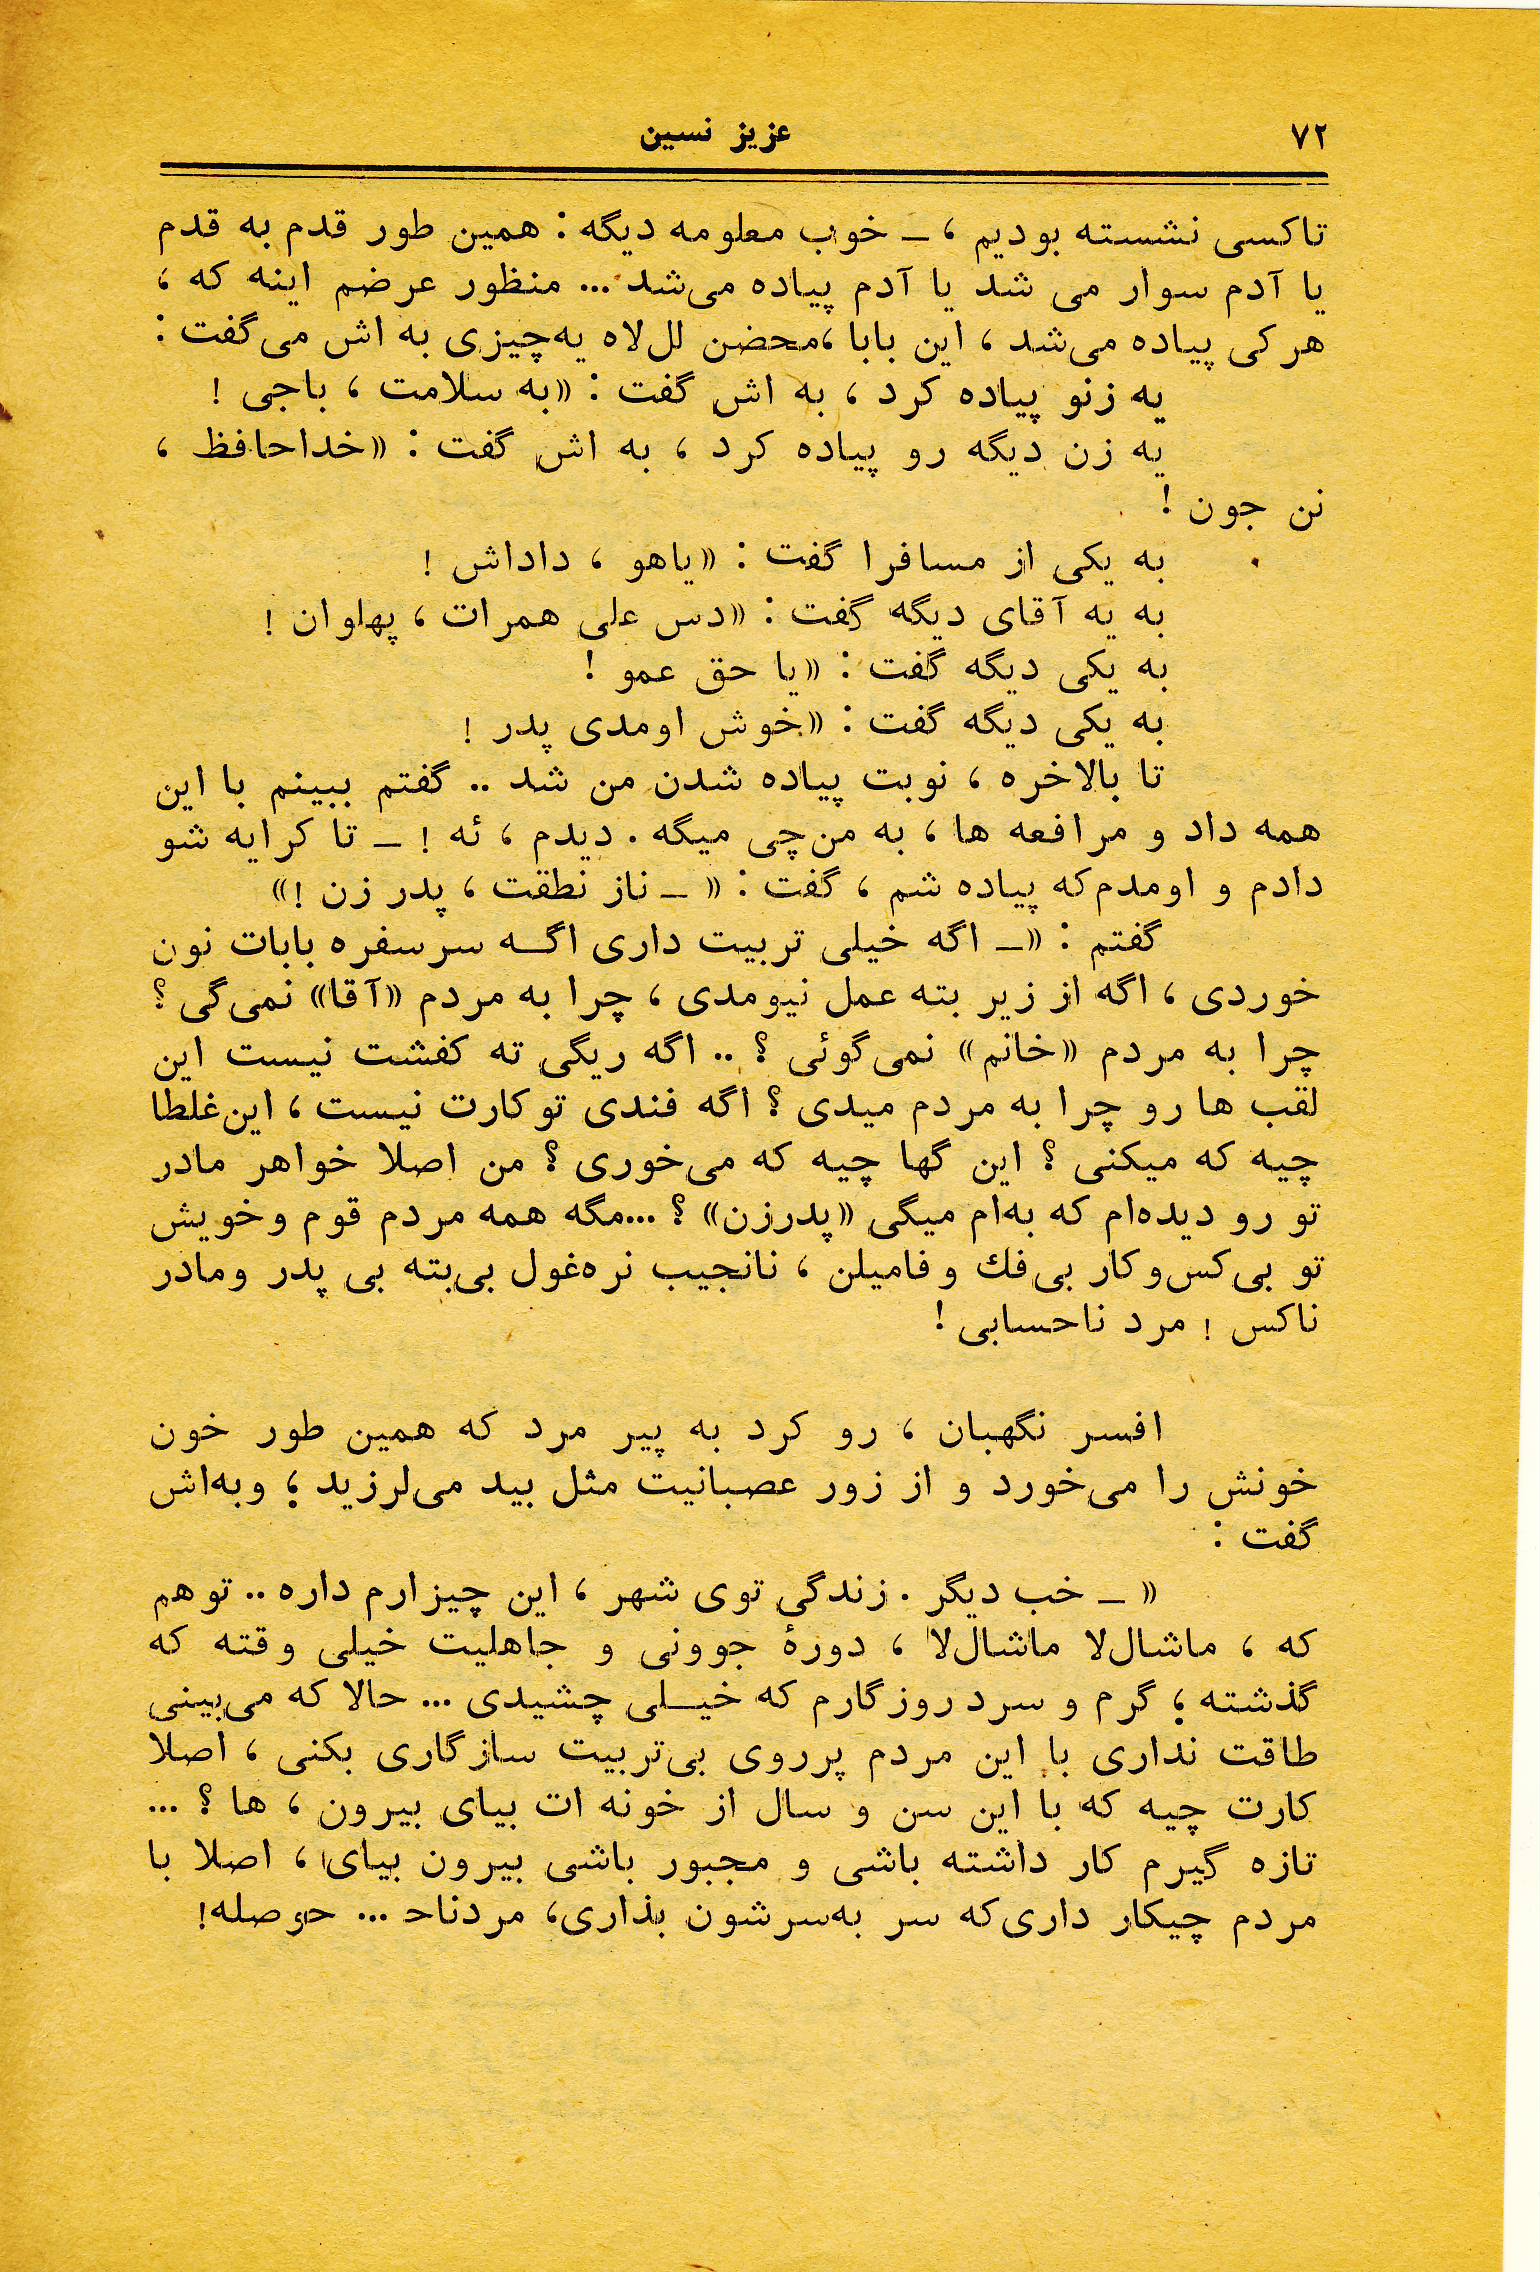 ۷۲
عزیز نسین
تاکسی نشسته بودیم ، ــ خوب معلومه دیگه : همین طور قدم به قدم
یا آدم سوار می شد یا آدم پیاده می‌شد ... منظور عرضم اینه که ،
هرکی پیاده می‌شد ، این بابا ،محضن لل‌لاه یه‌چیزی به اش می‌گفت :
یه زنو پیاده کرد ، به اش گفت : «به سلامت ، باجی !
یه زن دیگه رو پیاده کرد ، به اش گفت : «خداحافظ ،
نن جون !
به یکی از مسافرا گفت : «یاهو ، داداش !
به یه آقای دیگه گفت : «دس علی همرات ، پهلوان !
به یکی دیگه گفت : «یا حق عمو !
به یکی دیگه گفت : «خوش اومدی پدر !
تا بالاخره ، نوبت پیاده شدن من شد .. گفتم ببینم با این
همه داد و مرافعه ها ، به من‌چی میگه . دیدم ، ئه ! ــ تا کرایه شو
دادم و اومدم‌که پیاده شم ، گفت : « ــ ناز نطقت ، پدر زن !»
گفتم : «ــ اگه خیلی تربیت داری اگـه سرسفره بابات نون
خوردی ، اگه از زیر بته عمل نیومدی ، چرا به مردم «آقا» نمی‌گی ؟
چرا به مردم «خانم» نمی‌گوئی ؟ .. اگه ریگی ته کفشت نیست این
لقب ها رو چرا به مردم میدی ؟ اگه فندی توکارت نیست ، این‌غلطا
چیه که میکنی ؟ این گها چیه که می‌خوری ؟ من اصلا خواهر مادر
تو رو دیده‌ام که به‌ام میگی «پدرزن» ؟ ...مگه همه مردم قوم وخویش
تو بی‌کس‌وکار بی‌فك وفامیلن ، نانجیب نره‌غول بی‌بته بی پدر ومادر
ناکس ! مرد ناحسابی !
افسر نگهبان ، رو کرد به پیر مرد که همین طور خون
خونش را می‌خورد و از زور عصبانیت مثل بید می‌لرزید ؛ وبه‌اش
گفت :
« ــ خب دیگر . زندگی توی شهر ، این چیزارم داره .. توهم
که ، ماشال‌لا ماشال‌لا ، دورهٔ جوونی و جاهلیت خیلی وقته که
گذشته ؛ گرم و سرد روزگارم که خیـلی چشیدی ... حالا که می‌بینی
طاقت نداری با این مردم پرروی بی‌تربیت سازگاری بکنی ، اصلا
کارت چیه که با این سن و سال از خونه ات بیای بیرون ، ها ؟ ...
تازه گیرم کار داشته باشی و مجبور باشی بیرون بیای ، اصلا با
مردم چیکار داری‌که سر به‌سرشون بذاری، مردناحـ ... حوصله!